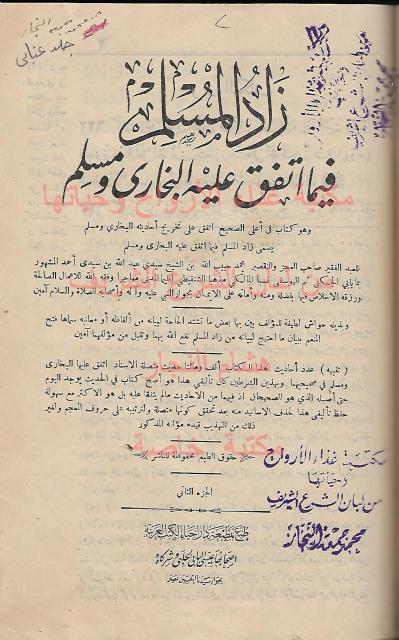 محمد جمعة النجار
جلد عناني
زاد المسلم
فيما اتفق عليه البخاري ومسلم
مكتبة غذاء الأرواح وحياتها
وهو كتاب في أعلى الصحيح اتفق على تخريج أحاديثه البخاري ومسلم
يسمى زاد المسلم فيما اتفق عليه البخارى ومسلم
للعبد الفقير صاحب العجز والتقصير محمد حبيب الله بن الشيخ سيدى عبد الله بن سيدى أحمد المشهور
بمايابى الجكنى ثم اليوسفى نسبا المالكى مذهبا الشنقيطى إقليما المدنى مهاجرا وفقه الله للأعمال الصالحة
من لبان الشرع الشريف
ورزقه الاخلاص فيها بفضله ومنه وأماته على الايمان بجوار النبي عليه وآله وأصحابه الصلاة والسلام آمين
وبذيله حواش لطيفة للمؤلف بين بها بعض ما تشتد الحاجة لبيانه من ألفاظه أو معانيه سماها فتح
المنعم ببيان ما احتيج لبيانه من زاد المسلم نفع الله بها وتقبل من مؤلفها آمين
هشام النجار
( تنبيه ) عدد أحاديث هذا الكتاب ألف ومائتا حديث متصلة الاسناد اتفق عليها البخارى
ومسلم في صحيحهما وبهذين الشرطين كان تأليفي هذا هو أصح كتاب في الحديث يوجد اليوم
حتى أصله الذي هو الصحيحان اذ فيهما من الاحاديث مالم يتفقا عليه بل هو الاكثر مع سهولة
حفظ تأليفي هذا لحذف الاسانيد منه بعد تحقق كونها متصلة ولترتيبه على حروف المعجم ولغير
ذلك من التهذيب قيده مؤلفه المذكور
مكتبة خاصة
حقوق الطبع محفوظة للناشر
مكتبة غذاء الأرواح
وحياتها
الجزء الثاني
من لبان الشرع الشريف
محمد جمعة النجار
طبع بمطبعة دار إحياء الكتب العربية
أصحابها عيسى البابى الحلبى وشركاه
بجوار سيدنا الحسين بمصر